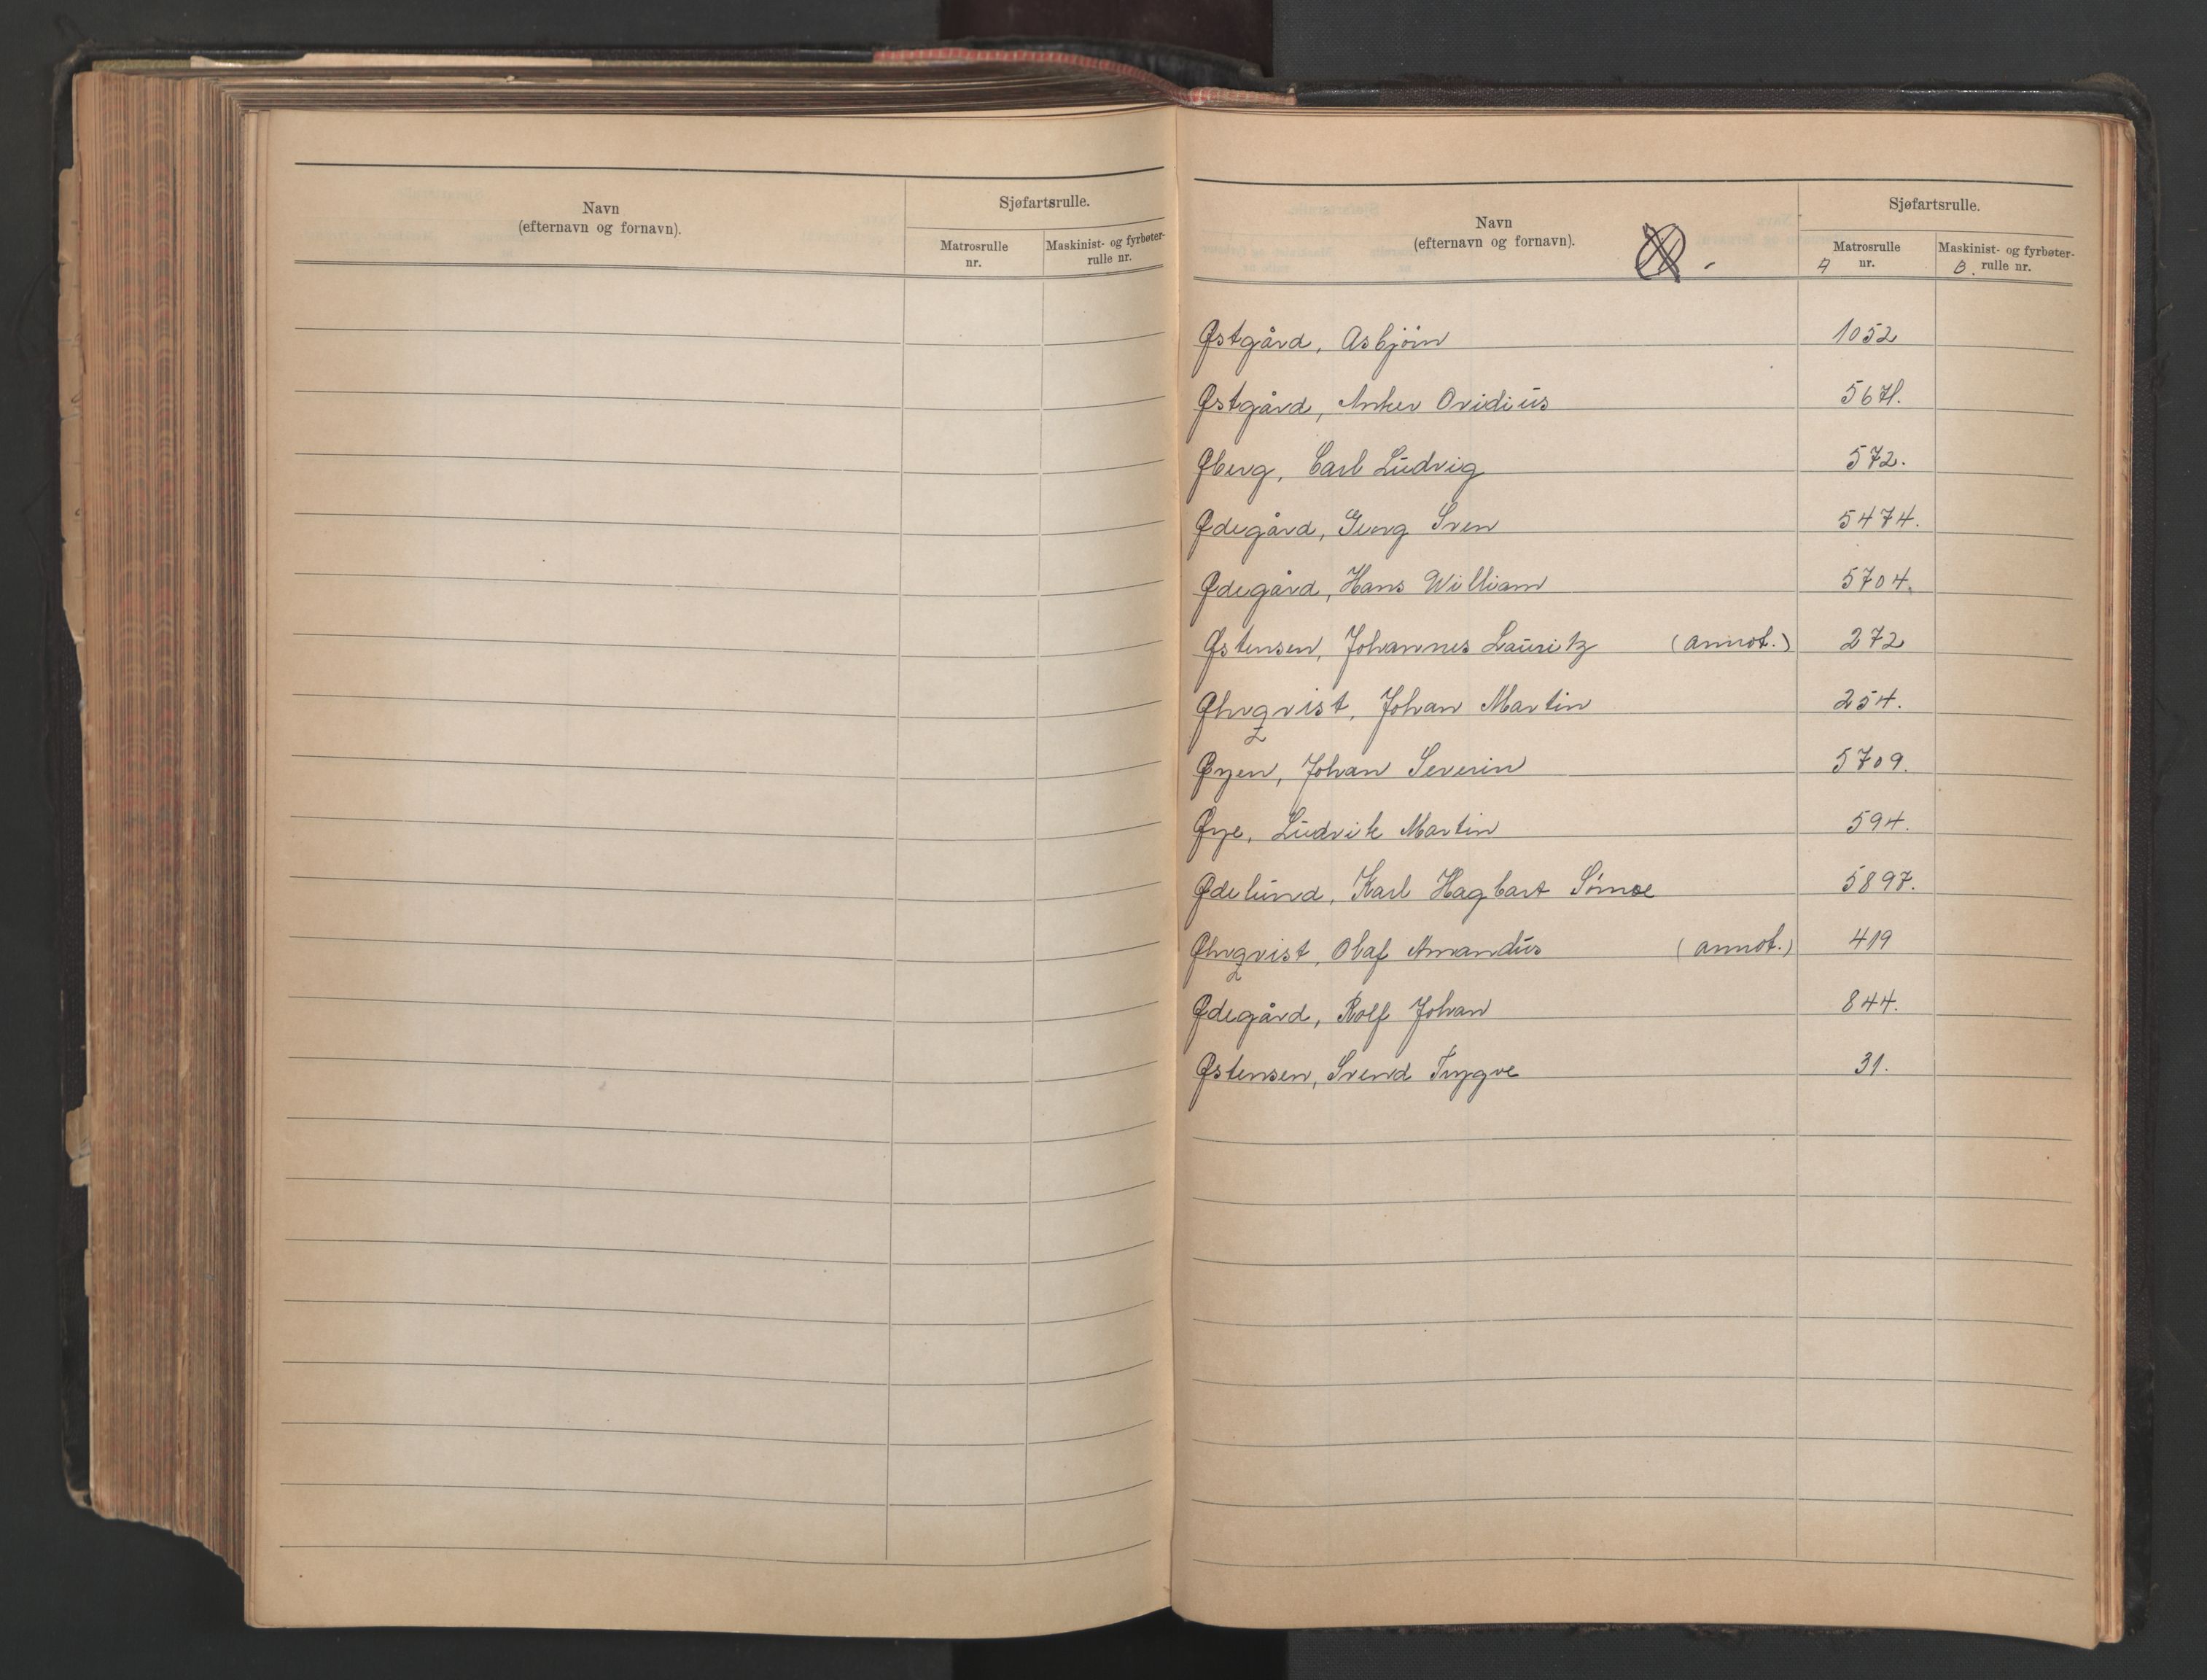 Navn
(efternavn og fornavn).
Sjøfartsrulle.
Matrosrulle
nr.
Maskinist- og fyrbøter-
rulle nr.
Navn
(efternavn og fornavn).
Ø.
Sjøfartsrulle.
Matrosrulle
A nr.
Maskinist- og fyrbøter-
B. rulle nr.
Østgård, Asbjørn 1052
Østgård, Anker Ovidius
Øberg, Carl Ludvig 572.
Ødegård, Georg Sven 5474.
Ødegård, Hans William 5704.
Østensen, Johannes Lauritz (annot.) 272
Øhrqvist, Johan Martin 254.
Øyen, Johan Severin 5709.
Øye, Ludvik Martin 594.
Ødelund, Karl Hagbart 5897.
Øhrqvist, Olaf Amandus (annot.) 419
Ødegård, Rolf Johan 844.
Østensen, Svend Trygve 31.